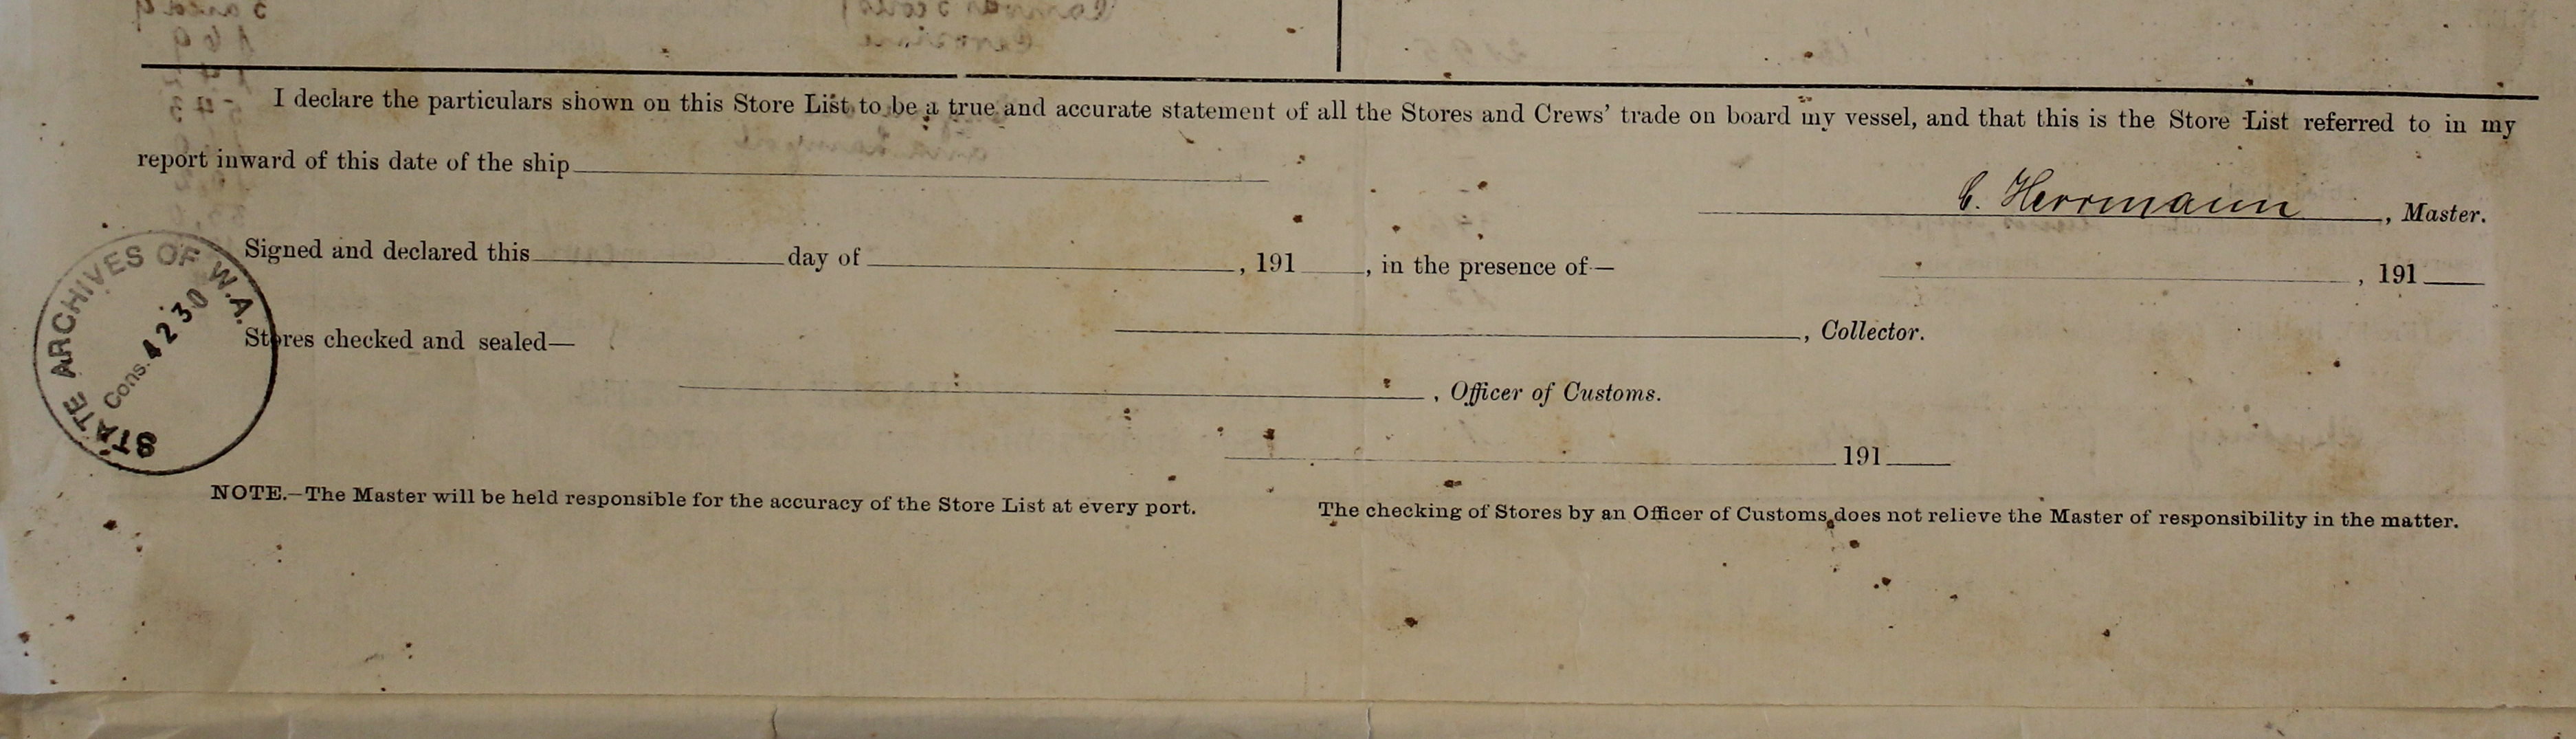 I declare the particulars shown on this Store List to be a true and accurate statement of all the Stores and Crews' trade on board my vessel, and that this is the Store List referred to in my
report inward of this date of the ship
C. Herrmann, Master.
Signed and declared this day of , 191 , in the presence of—
, 191
Stores checked and sealed—
, Collector.
, Officer of Customs.
191
NOTE.—The Master will be held responsible for the accuracy of the Store List at every port. The checking of Stores by an Officer of Customs does not relieve the Master of responsibility in the matter.
STATE ARCHIVES OF W.A.
Cons. 4230